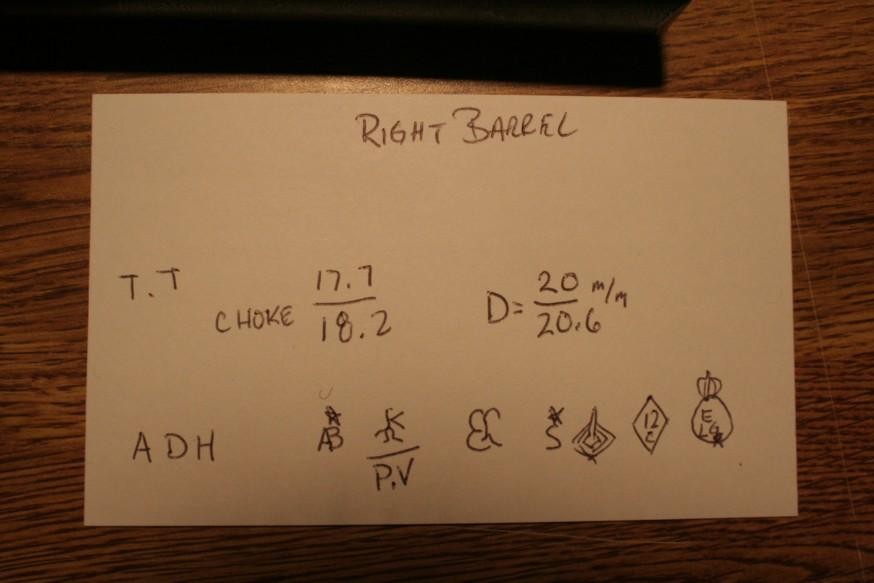 RIGHT BARREL
T.T CHOKE 17.7/18.2 D= 20/20.6 m/m
ADH AB P.V S 12 C E LG